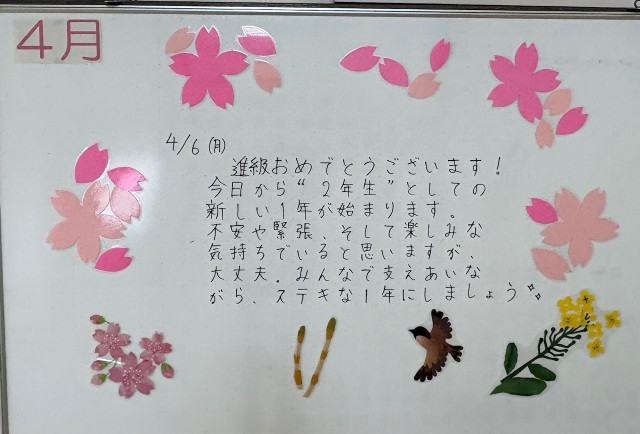 4月
4/6(月)
進級おめでとうございます!
今日から“2年生”としての
新しい1年が始まります。
不安や緊張、そして楽しみな
気持ちでいると思いますが、
大丈夫。みんなで支えあいな
がら、ステキな1年にしましょう